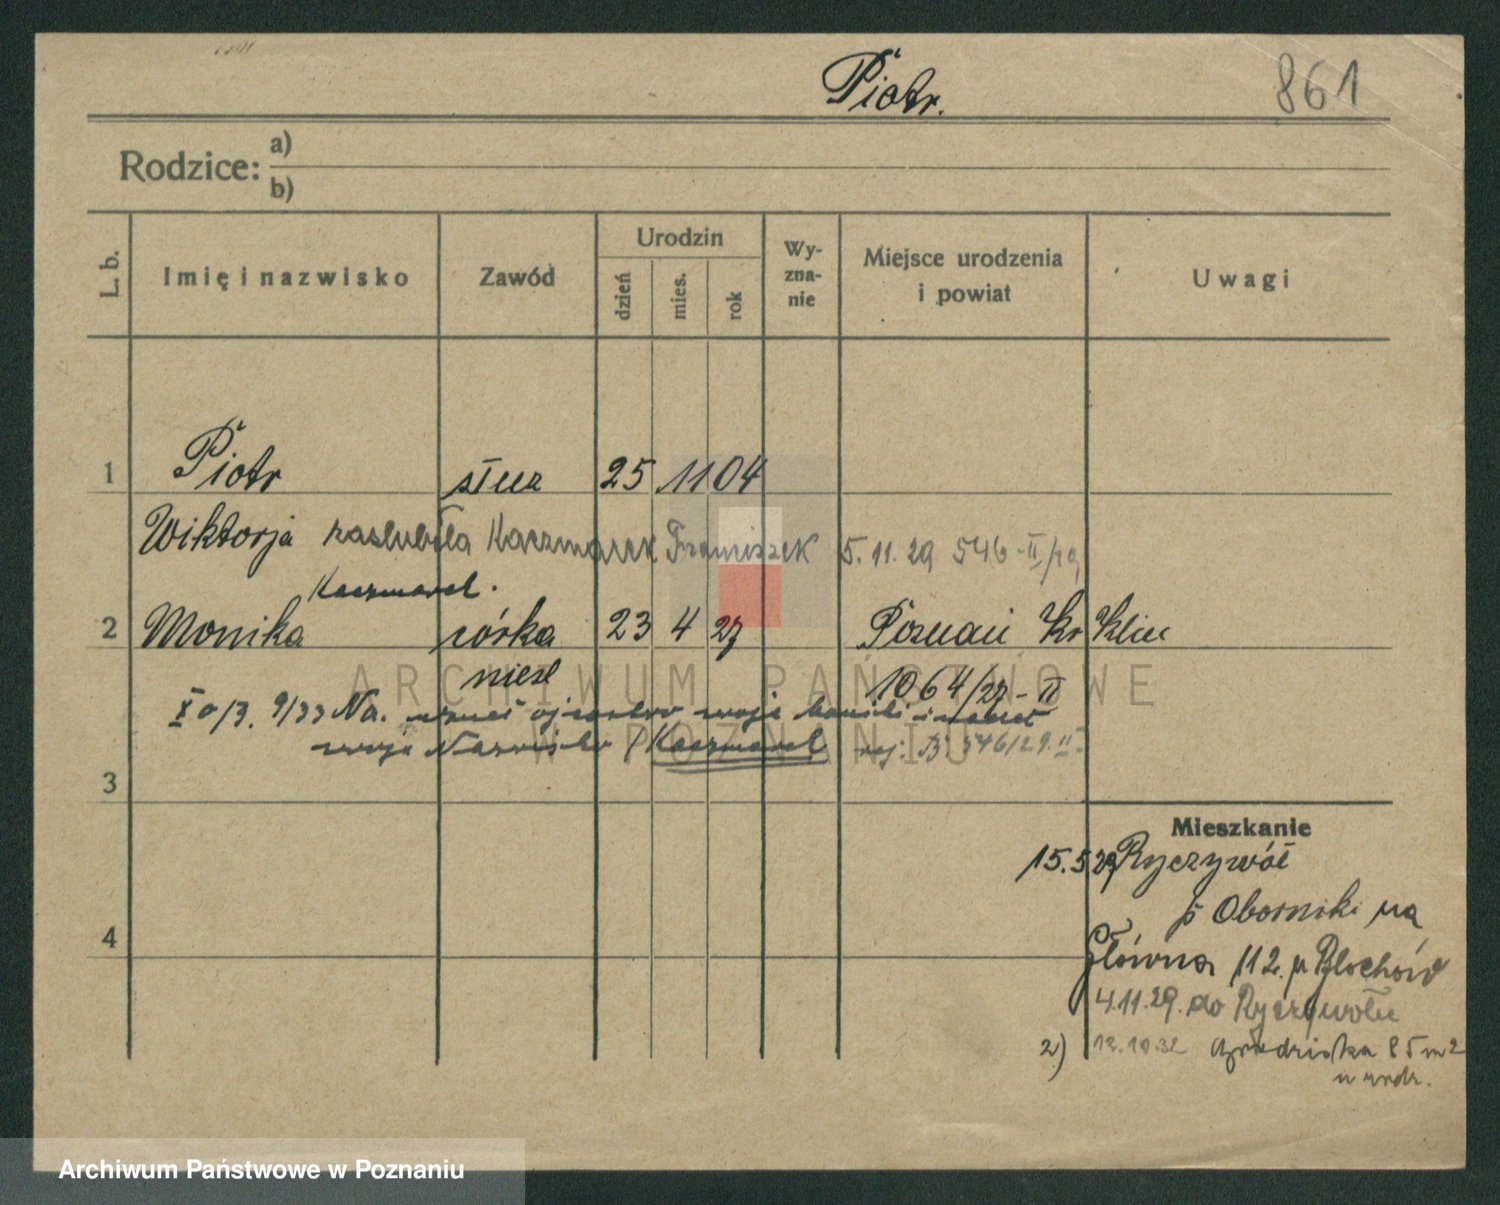 Piotr.
861
Rodzice: a)
b)
L. b.
Imię i nazwisko
Zawód
Urodzin
dzień
mies.
rok
Wy-
zna-
nie
Miejsce urodzenia
i powiat
Uwagi
1 Piotr służ 25 11 04
Wiktorja zaślubiła Kaczmarek Franciszek 5.11.29 546-II/29
Kaczmarek.
2 Monika córka 23 4 27 Poznań Kr Klin
nieśl 1064/27-II
9/33 Na. moje
moje Nazwisko Kaczmarek rej. B. 546/29.II.
3
Mieszkanie
15.5.29 Ryczywół
Oborniki na
4
Główna 112. p Blochów
4.11.29. do Ryczywołu
2) 12.10.32 85 m 2
ARCHIWUM PAŃSTWOWE
W POZNANIU
Archiwum Państwowe w Poznaniu